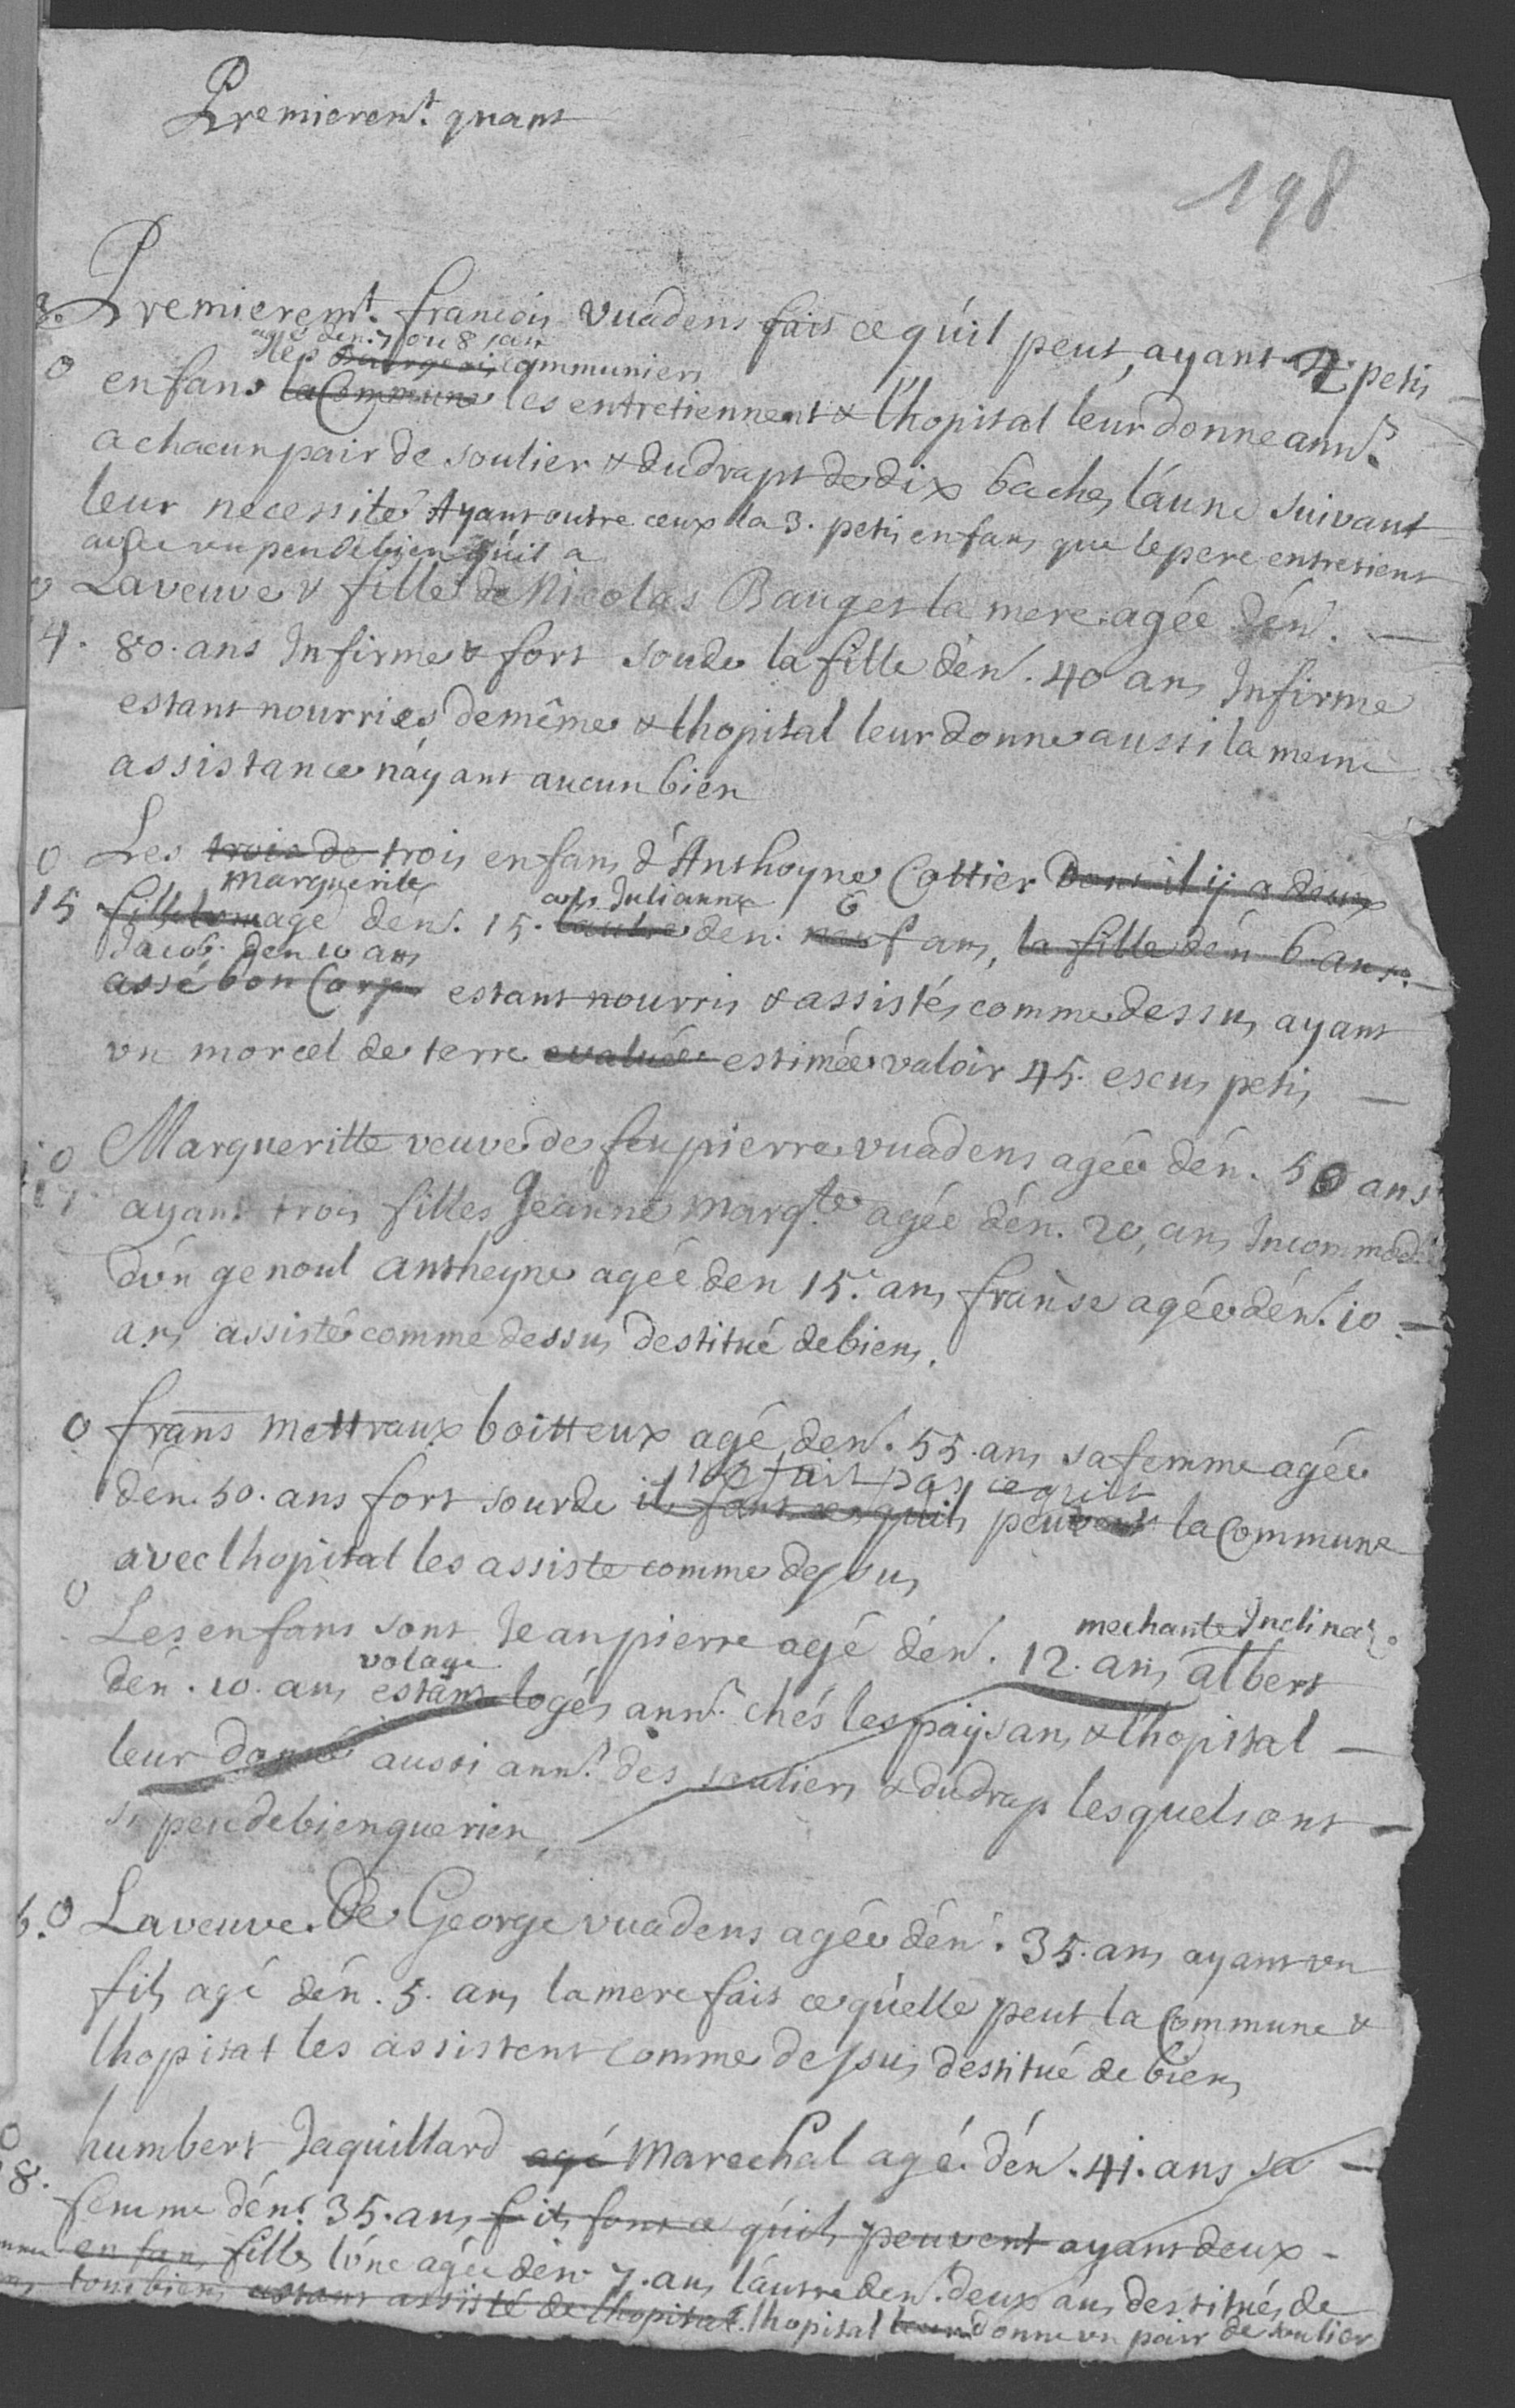 Premierem.t quant
198
3. Premierem.t francois vuadens fait ce qúil peut, ayant 2 petis
agés den. 7 ou 8 ans
les communiers
0 enfans la Commune les entretiennent & lhopital leur donne ann.t
a chacun pair de soulier & du drapt de dix baches láune suivant
leur necessité Ayant outre ceux la 3. petis enfans que le pere entretient
avec un peu de bien qúil a
0 La veuve & fille de Nicolas Bauget la mere agée dén. —
4. 80. ans Infirme & fort sourde la fille dèn. 40 ans Infirme
estant nourries de même & lhopital leur donne aussi la meme
assistance náyant aucun bien
0 Les trois de trois enfans d'Anthoyne Cottier Dont il ÿ a deux
Marguerite
Julianna 6
15 fille age dén. 15. lautre dén. neuf ans, la fille dén 6 ans —
Jacob den 10 ans
assé bon Corps estant nourris & assistés comme dessus ayant
un morcel de terre evaluée estimée valoir 45. escus petis —
0 Margueritte veuve de feu pierre vuadens agée dén. 50 ans
ayant trois filles Jeanne Marg.te agée dén. 20, ans Incommodée
dún genoul Antheyne agée den 15. ans franse agée dén. 10 —
ans assisté comme dessus destitué de biens.
0 frans Mettraux boitteux agé den. 55. ans sa femme agée
ne fait pas ce quil
dén. 50. ans fort sourde ils font ce quils peuvent la Commune
avec lhopital les assiste comme dessus
mechante Inclinat.
0 Les enfans sont Jean pierre agé dén. 12. ans albert
volage
dén. 10. ans estans logés ann.t chés les paÿsans & lhopital —
leur donne aussi ann.t des souliers & du drap lesquels ont —
si peu de bien que rien
6. 0 La veuve De George vuadens agée dén. 35. ans ayant un
fils agé dén. 5. ans la mere fait ce qúelle peut la Commune &
lhopital les assistent comme dessus destitué de biens
0 humbert Jaquillard agé Marechal agé dén. 41. ans sa —
8. femme dén.t 35. ans f ils font ce qúils peuvent ayant deux —
enfans filles lúne agée dén. 7. ans láutre den. deux ans destitués de
tous biens estant assisté de lhopital. lhopital leur donne un pair de soulier